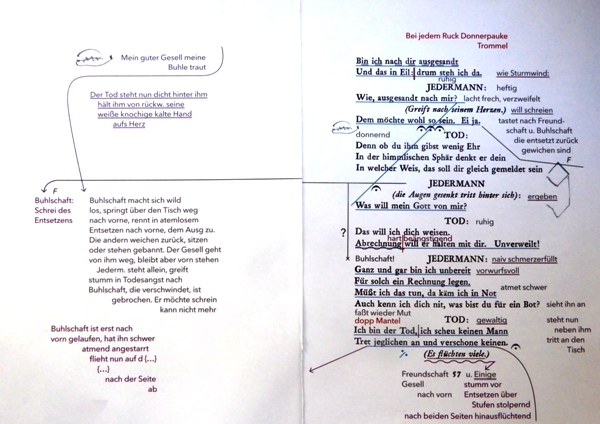 Mein guter Gesell meine
Buhle traut
Der Tod steht nun dicht hinter ihm
hält ihm von rückw. seine
weiße knochige kalte Hand
aufs Herz
F
Buhlschaft:
Schrei des
Entsetzens
Buhlschaft macht sich wild
los, springt über den Tisch weg
nach vorne, rennt in atemlosem
Entsetzen nach vorne, dem Ausg zu.
Die andern weichen zurück, sitzen
oder stehen gebannt. Der Gesell geht
von ihm weg, bleibt aber vorn stehen
Jederm. steht allein, greift
stumm in Todesangst nach
Buhlschaft, die verschwindet, ist
gebrochen. Er möchte schrein
kann nicht mehr
Buhlschaft ist erst nach
vorn gelaufen, hat ihn schwer
atmend angestarrt
flieht nun auf d (...)
(...)
nach der Seite
ab
Bei jedem Ruck Donnerpauke
Trommel
Bin ich nach dir ausgesandt
Und das in Eil: drum steh ich da. wie Sturmwind:
ruhig
JEDERMANN: heftig
Wie, ausgesandt nach mir? lacht frech, verzweifelt
(Greift nach seinem Herzen.) will schreien
Dem möchte wohl so sein. Ei ja. tastet nach Freund-
schaft u. Buhlschaft
die entsetzt zurück
gewichen sind
donnernd
TOD:
Denn ob du ihm gibst wenig Ehr
In der himmlischen Sphär denkt er dein
In welcher Weis, das soll dir gleich gemeldet sein
F
JEDERMANN
(die Augen gesenkt tritt hinter sich): ergeben
Was will mein Gott von mir?
TOD: ruhig
?
Das will ich dich weisen.
hart beängstigend
Abrechnung will er halten mit dir. Unverweilt!
Buhlschaft! JEDERMANN: naiv schmerzerfüllt
Ganz und gar bin ich unbereit vorwurfsvoll
Für solch ein Rechnung legen.
atmet schwer
Müßt ich das tun, da käm ich in Not
Auch kenn ich dich nit, was bist du für ein Bot? sieht ihn an
faßt wieder Mut
dopp Mantel TOD: gewaltig steht nun
neben ihm
tritt an den
Tisch
Ich bin der Tod, ich scheu keinen Mann
Tret jeglichen an und verschone keinen.
(Es flüchten viele.)
Freundschaft 57 u. Einige
Gesell stumm vor
nach vorn Entsetzen über
Stufen stolpernd
nach beiden Seiten hinausflüchtend